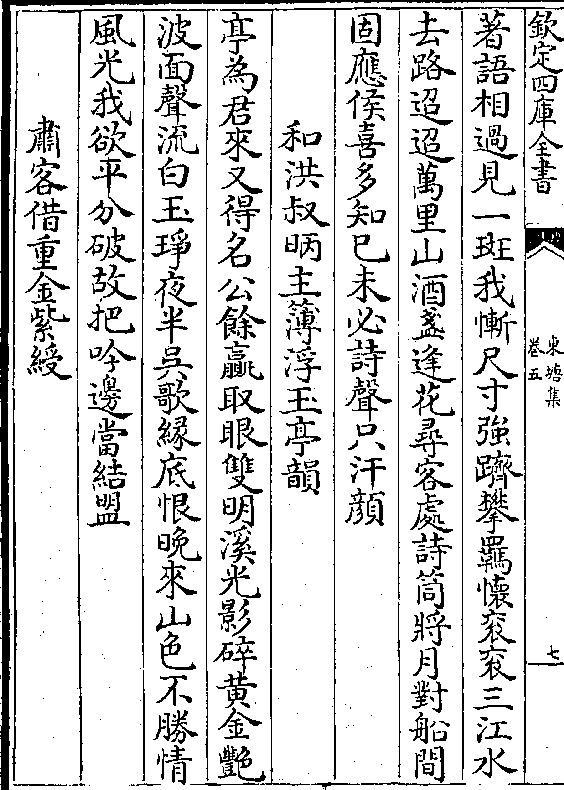 欽定四庫全書
東塘集
卷五
七
著語相過見一斑我慚尺寸強躋攀羈懷衮衮三江水
去路迢迢萬里山酒盞逢花尋客處詩筒將月對船間
固應侯喜多知已未必詩聲只汗顔
和洪叔昞主薄浮玉亭韻
亭為君來又得名公餘贏取眼雙明溪光影碎黄金艷
波面聲流白玉琤夜半吳歌緣底恨晚來山色不勝情
風光我欲平分破故把吟邊當結盟
肅客借重金紫綬